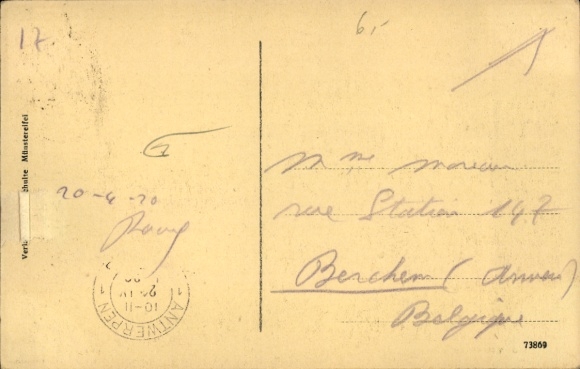 17
Schulte Münstereifel
20-4-20
ANTWERPEN
10-11
1 1
Mme Moreau
rue Station 147
Berchem (Anvers)
Belgique
73869